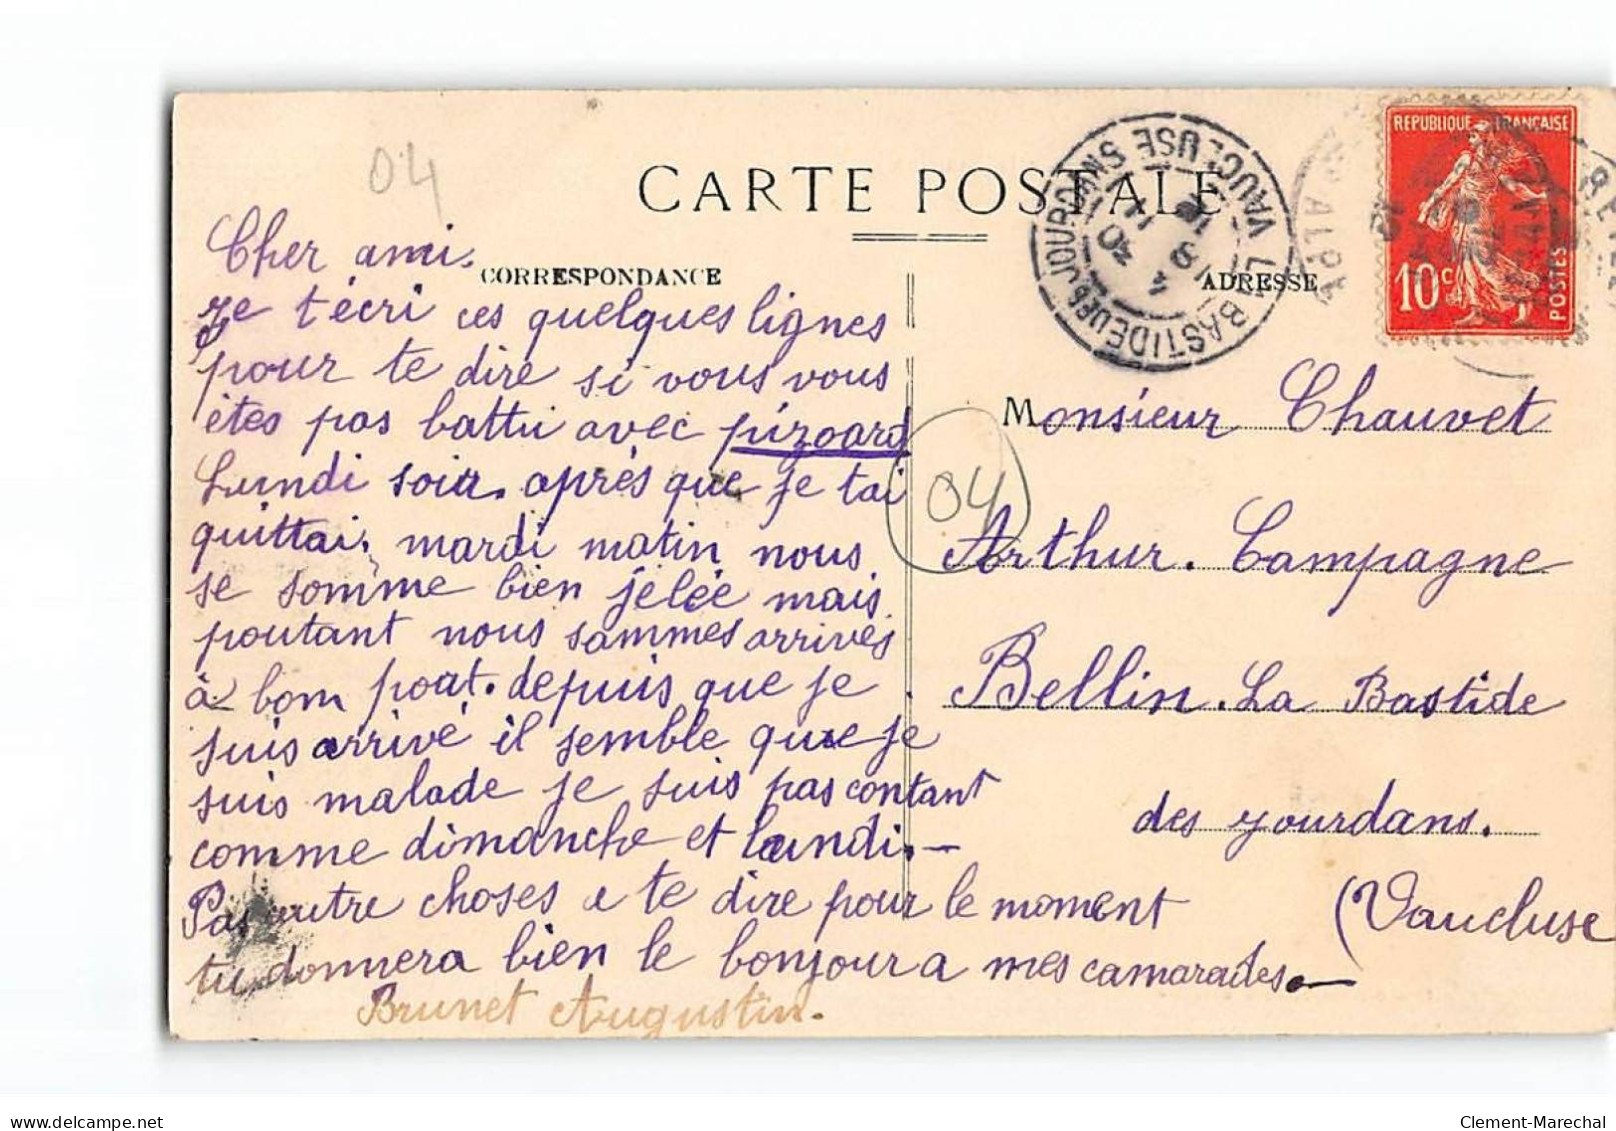 04
CARTE POSTALE
CORRESPONDANCE
ADRESSE
Cher ami.
Je t'écri ces quelques lignes
pour te dire si vous vous
êtes pas battu avec pizoard
Lundi soir. après que je tai
quittai. mardi matin nous
se somme bien jelée mais
poutant nous sammes arrivés
à bom port. depuis que je
suis arrivé il semble que je
suis malade je suis pas contant
comme dimanche et lundi. —
Pas autre choses a te dire pour le moment
tu donnera bien le bonjour a mes camarades. —
Brunet Augustin.
LA BASTIDE DES JOURDANS VAUCLUSE
REPUBLIQUE FRANÇAISE
10 c
POSTES
04
Monsieur Chauvet
Arthur. Campagne
Bellin. La Bastide
des yourdans.
(Vaucluse
Clement-Marechal